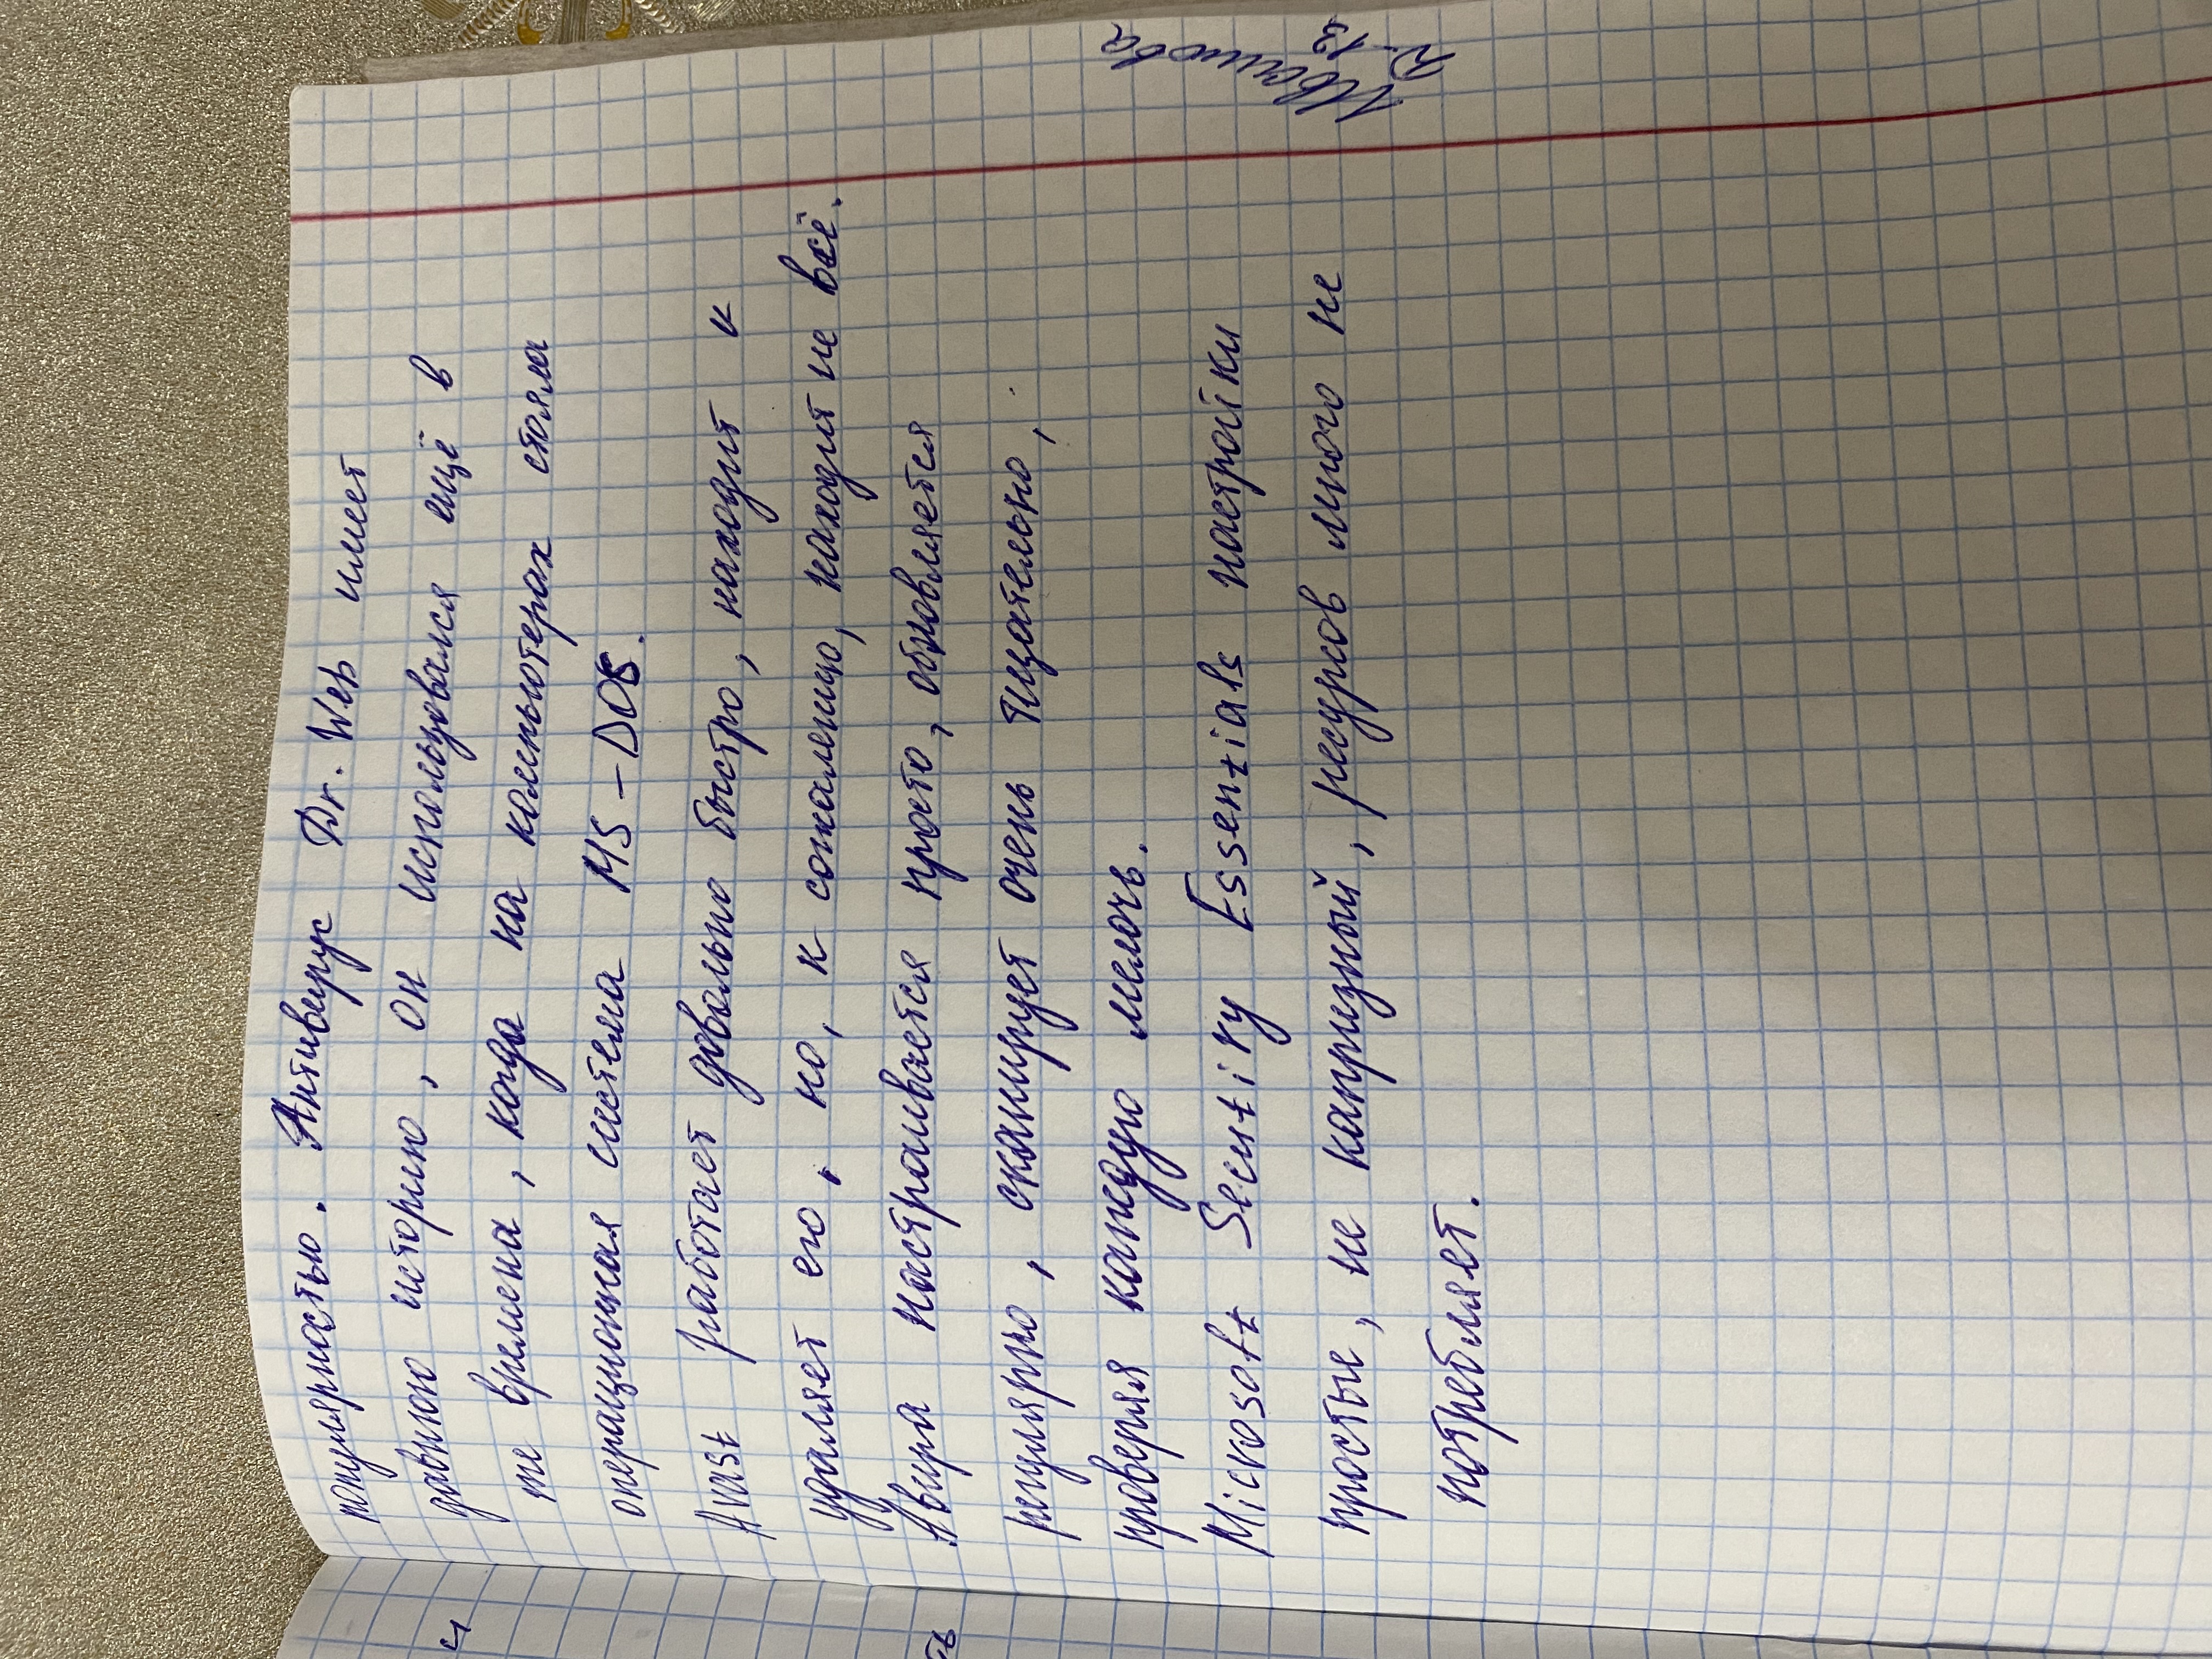 популярностью. Антивирус Dr. Web имеет
давнюю историю, он использовался ещё в
те времена, когда на компьютерах стояла
операционная система MS-DOS.
Avast работает довольно быстро, находит и
удаляет его, но, к сожалению, находит не всё.
Авира настраивается просто, обновляется
регулярно, сканирует очень тщательно,
проверяя каждую мелочь.
Microsoft Secutiry Essentials настройки
простые, не капризный, ресурсов много не
потребляет.